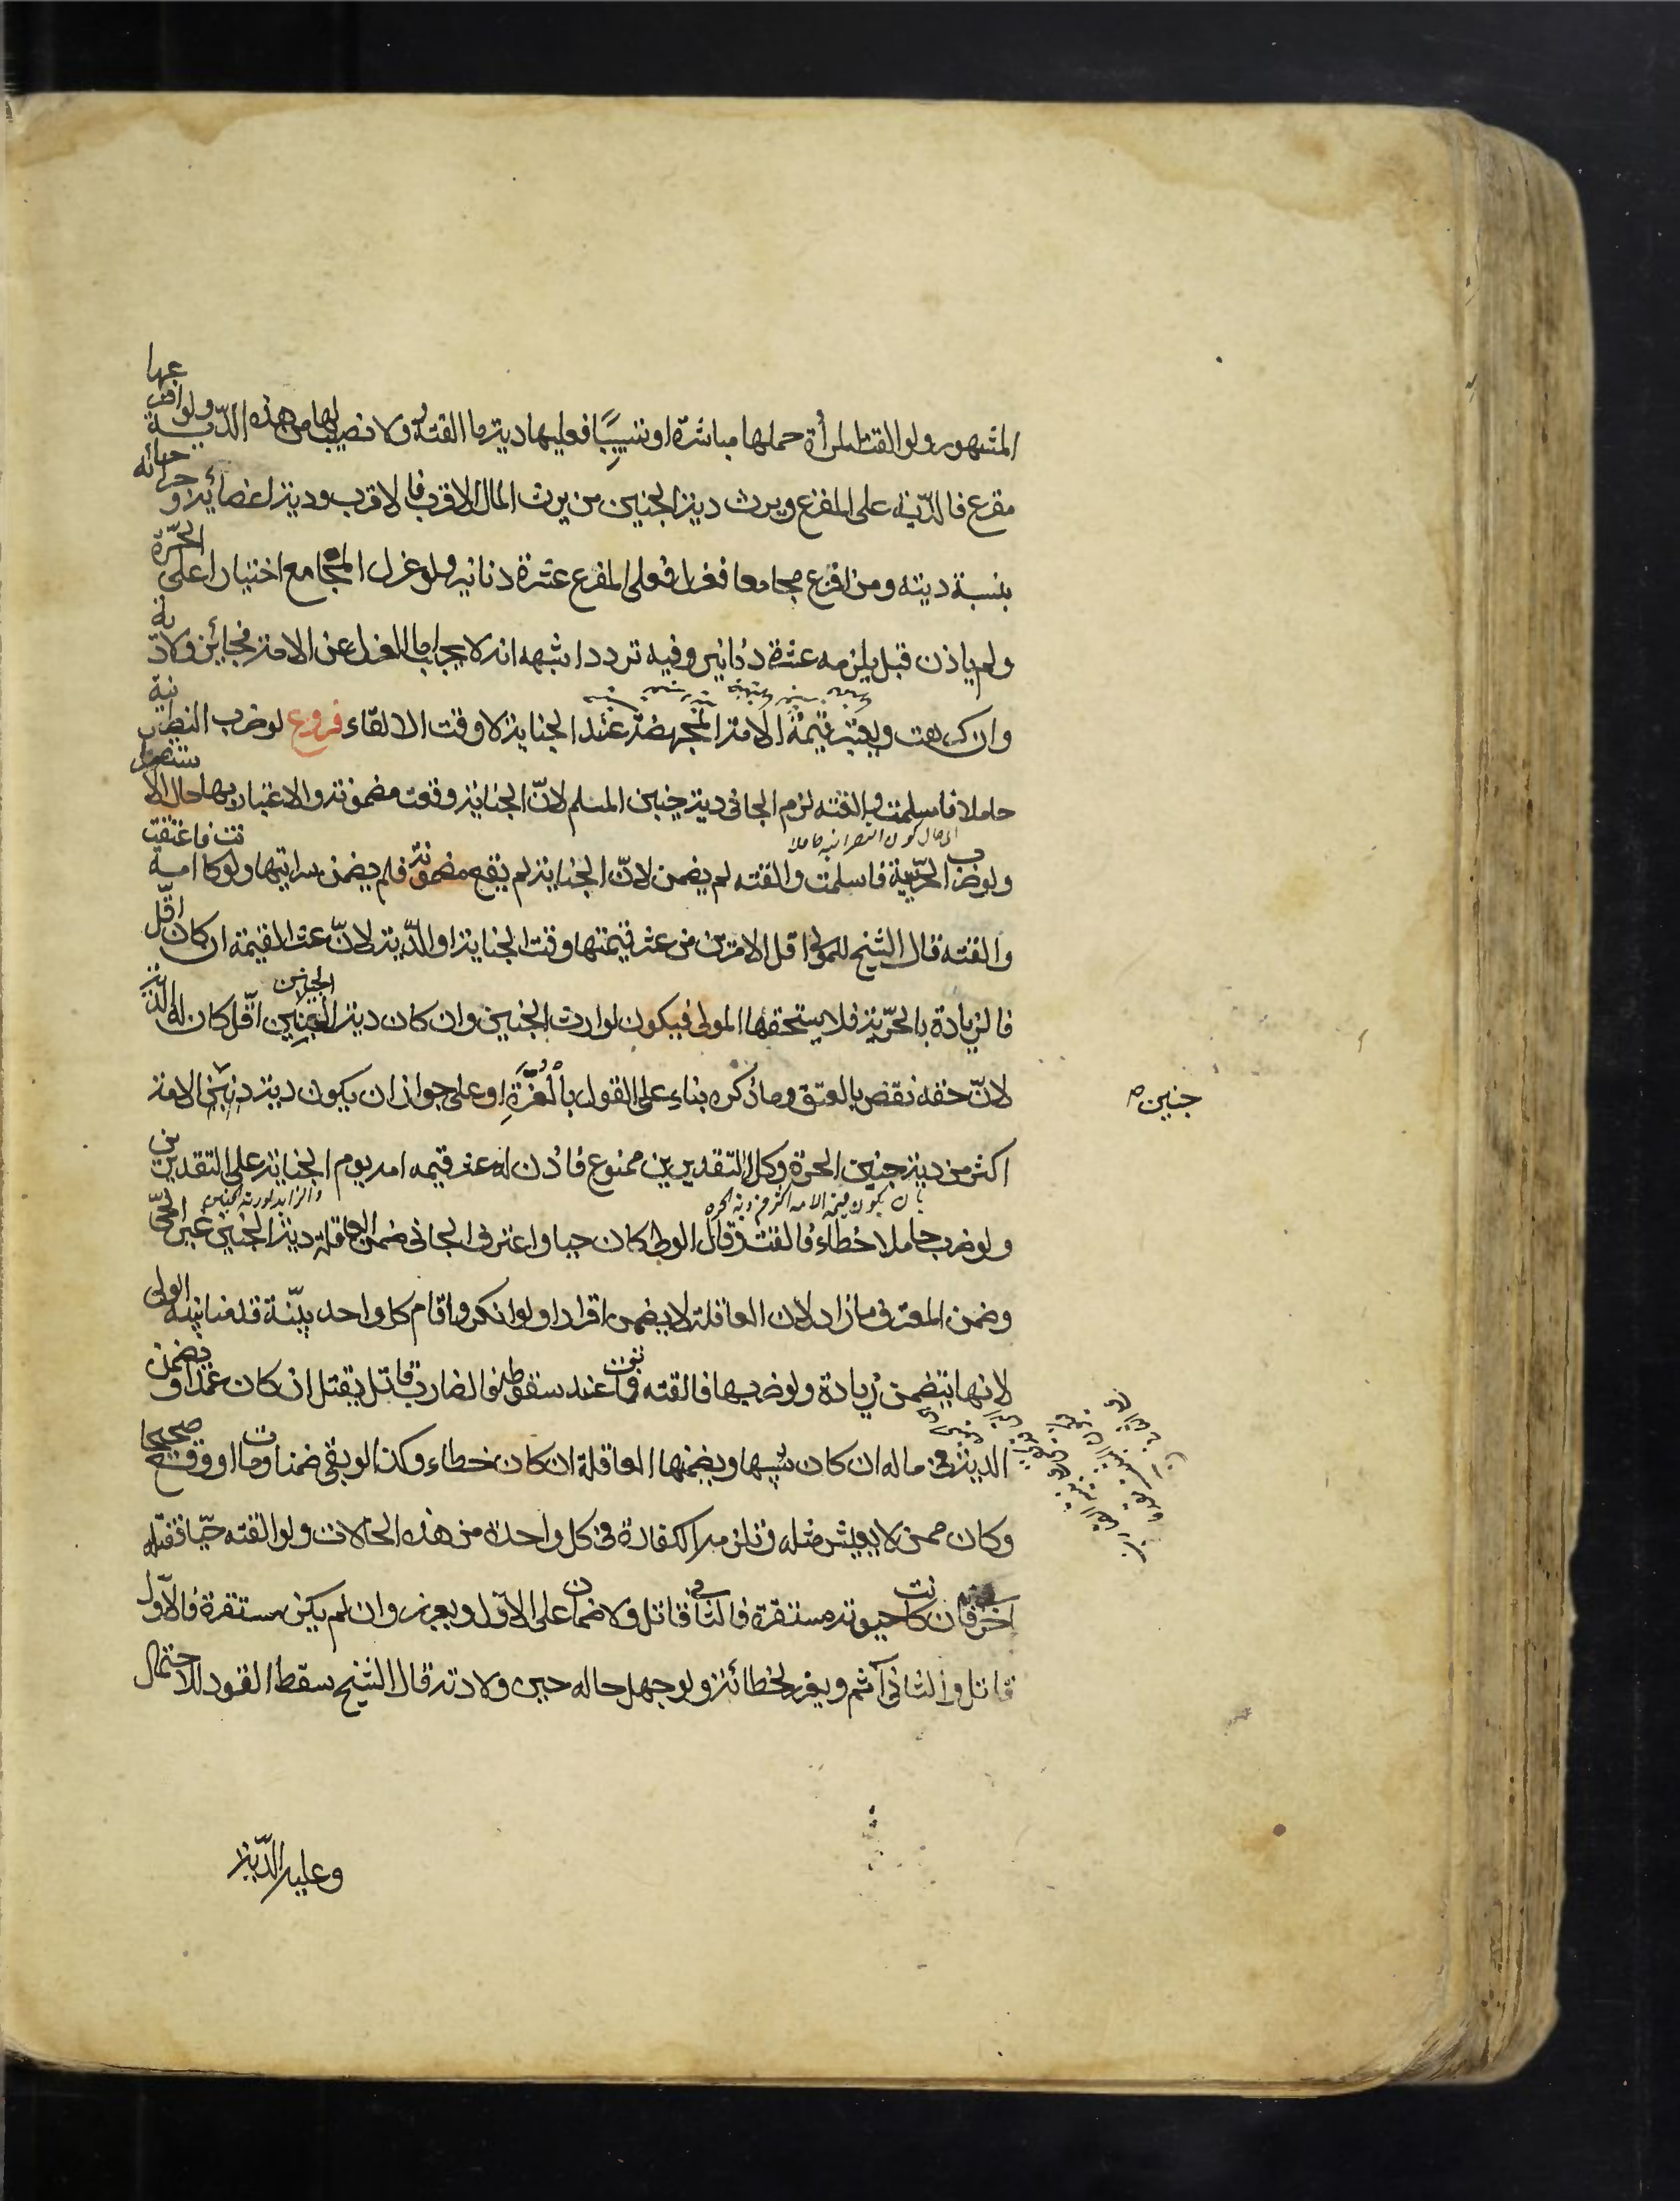 المشهور ولو القت المرأة حملها مباشرة او تسبيبا فعليها دية ما القته ولا نصيب لها من هذه الدية ولو افزعها
مفزع فالدية على المفزع ويرث دية الجنين من يرث المال الاقرب فالاقرب ودية اعضائه و جراحاته
بنسبة ديته ومن افزع مجامعا فعزل فعلى المفزع عشرة دنانير ولو عزل المجامع اختيارا عن الحرة
ولم ياذن قيل يلزمه عشرة دنانير وفيه تردد اشبهه انه لا يجب اما العزل عن الامة فجائز ولا دية
وان كرهت ويعتبر قيمة الامة المجهضة عند الجناية لا وقت الالقاء فروع لو ضرب النصرانية
حاملا فاسلمت و القته لزم الجانى دية جنين المسلم لان الجناية وقعت مضمونة والاعتبار بها حال الاستقرار
الى حال كون النصرانية حاملا
ولو ضرب الحربية فاسلمت والقته لم يضمن لان الجناية لم يقع مضمونة فلم يضمن سرايتها ولو كانت امة فاعتقت
والقته قال الشيخ للمولى اقل الامرين من عشر قيمتها وقت الجناية او الدية لان عشر القيمة ان كان اقل
فالزيادة بالحرية فلا يستحقها المولى فيكون لوارث الجنين وان كان دية الجنين اقل كان له الدية
لان حقه نقص بالعتق وما ذكره بناء على القول بالغرة او على جواز ان يكون دية جنين الامة
جنين
اكثر من دية جنين الحرة وكلا التقديرين ممنوع فاذن له عشر قيمه امه يوم الجناية على التقديرين
بان يكون قيمة الامه اكثر من دية الحره
والزايد لورثة الجنين
ولو ضرب حاملا خطاء فالقت وقال الولى كان حيا واعترف الجانى ضمن العاقلة دية الجنين غير الحى
وضمن المعترف ما زاد لان العاقلة لا يضمن اقرارا ولو انكر واقام كل واحد بينة قدمنا بينة الولى
لانها يتضمن زيادة ولو ضربها فالقته فمات عند سقوطه فالضارب قاتل يقتل ان كان عمدا و يضمن
الدية فى ماله ان كان شبيها ويضمنها العاقلة ان كان خطاء وكذا لو بقى ضمنا ومات او وقع صحيحا
وكان ممن لا يعيش مثله وتلزمه الكفارة فى كل واحدة من هذه الحالات ولو القته حيا فقتله
اخر فان كانت حيوته مستقرة فالثانى قاتل ولا ضمان على الاول ويعزر وان لم يكن مستقرة فالاول
قاتل والثانى آثم ويعزر لخطائه ولو جهل حاله حين ولادته قال الشيخ سقط القود للاحتمال
وعليه الدية